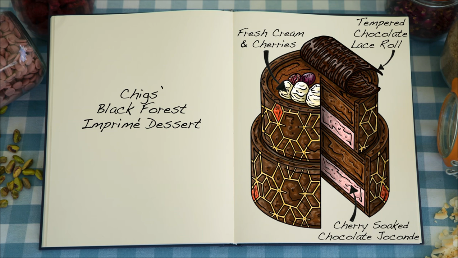 Chigs'
Black Forest
Imprimé Dessert
Fresh Cream
& Cherries
Tempered
Chocolate
Lace Roll
Cherry Soaked
Chocolate Joconde